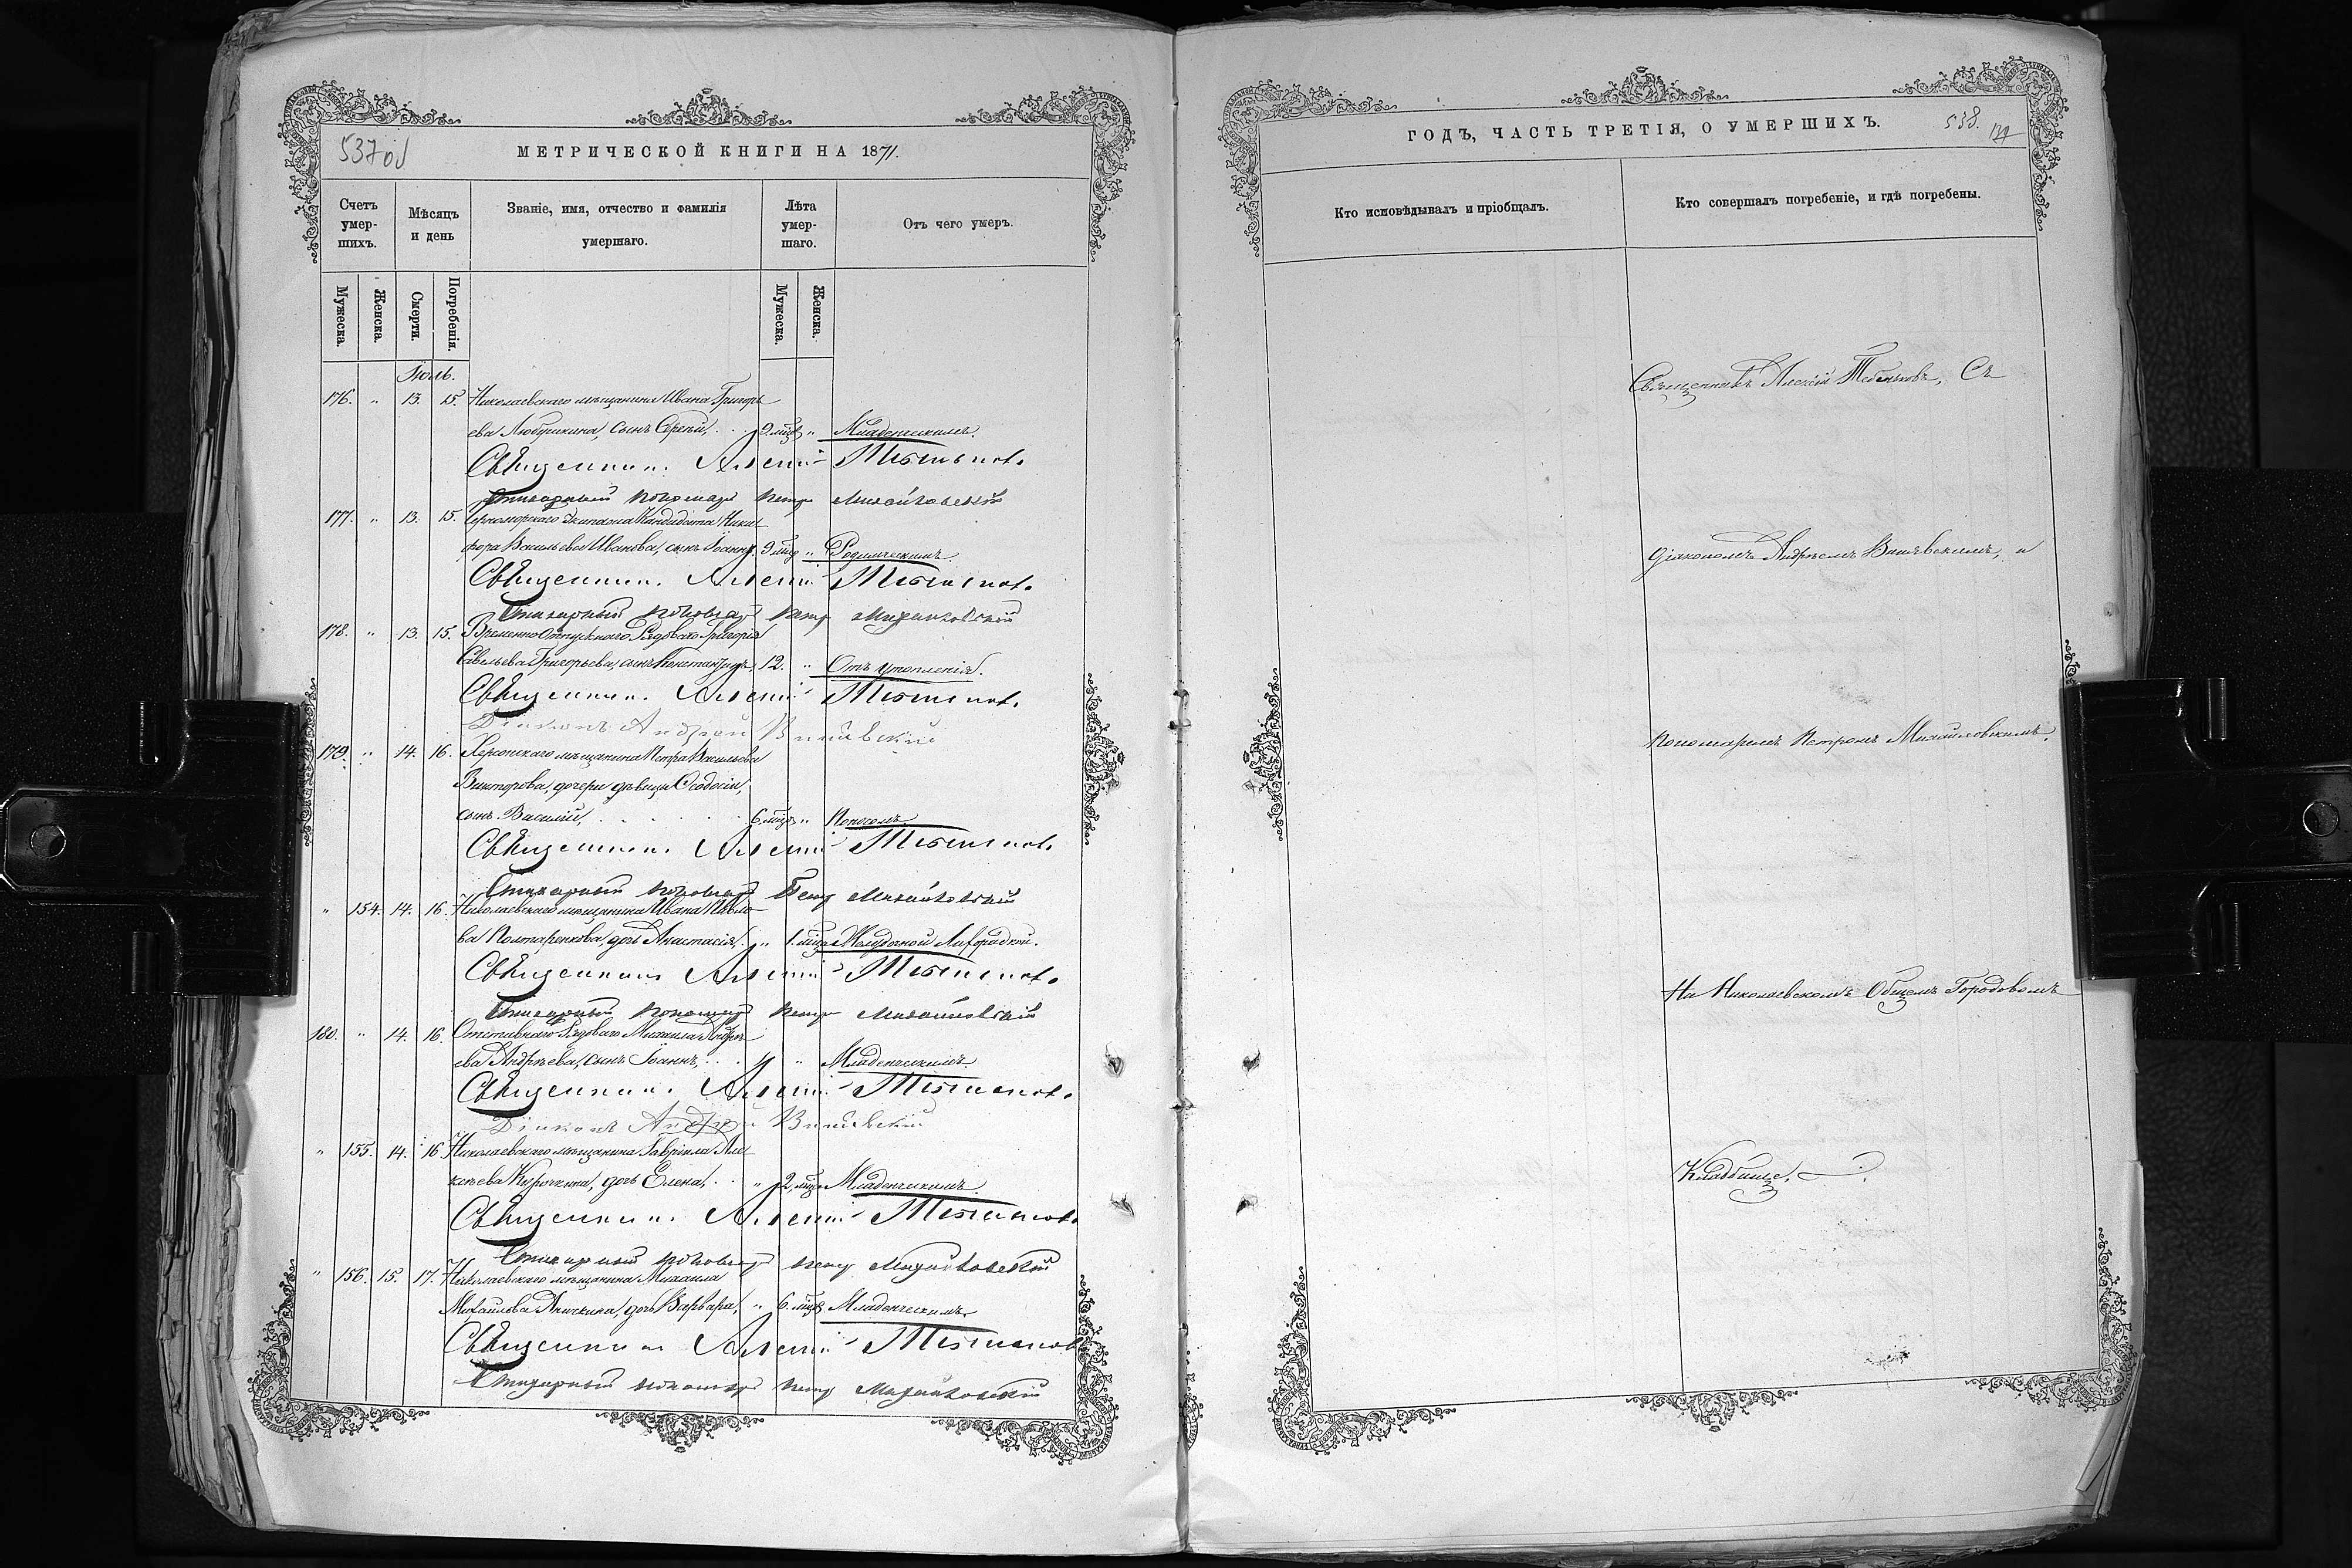 537об
МЕТРИЧЕСКОЙ КНИГИ НА 1871.
Счетъ умер-шихъ.
Мѣсяцъ и день
Званіе, имя, отчество и фамилія умершаго.
Лѣта умер-шаго.
Отъ чего умеръ.
Мужеска. Женска. Смерти. Погребенія. Мужеска. Женска.
Іюль.
176. " 13. 15. Николаевскаго мѣщанина Ивана Григорь
ева Любушкина, сынъ Сергій, 2 мцв " Младенческимъ.
Священник Алексій
Стихарный пономарь Петр Михайловский
177. " 13. 15. Черноморскаго Экипажа Кандидата Ники
фора Васильева Иванова, сынъ Іоаннъ. 9 мцв " Родимческимъ
Священник Алексій
Стихарный пономарь Петр Михайловский
178. " 13. 15. Временно отпускного Рядового Григорія
Савельева Григорьева, сынъ Константинъ, 12. " Отъ утопленія.
Священник Алексій
Діаконъ Андрей
179. " 14. 16. Херсонскаго мѣщанина Петра Васильева
Викторова, дочери дѣвицы Ѳеодосіи,
сынъ Василій, 6 мцв " Поносомъ
Священник Алексій
Стихарный пономарь Петр Михайловский
" 154. 14. 16. Николаевскаго мѣщанина Ивана Павло
ва Полтаренкова, дочь Анастасія, " 1. мцв Желудочной Лихорадкой.
Священник Алексій
Стихарный пономарь Петр Михайловский
180. " 14. 16. Отставнаго Рядового Михаила Андре
ева Андрѣева, сынъ Іоаннъ, " Младенческимъ
Священник Алексій
Діаконъ Андрей
" 155. 14. 16 Николаевскаго мѣщанина Гавріила Але
ксѣева Курочкина, дочь Елена, " 2, мцв Младенческимъ
Священник Алексій
Стихарный пономарь Петр Михайловский
" 156. 15. 17. Николаевскаго мѣщанина Михаила
Михайлова Аничкина, дочь Варвара, " 6. мцв Младенческимъ
Священник Алексій
Стихарный пономарь Петр Михайловский
ГОДЪ, ЧАСТЬ ТРЕТІЯ, О УМЕРШИХЪ.
538.
Кто исповѣдывалъ и пріобщалъ.
Кто совершалъ погребеніе, и гдѣ погребены.
Священникъ Алексій Съ
Діакономъ Андреемъ и
Пономаремъ Петромъ Михайловскимъ.
На Николаевскомъ Общемъ Городовомъ
Кладбище.